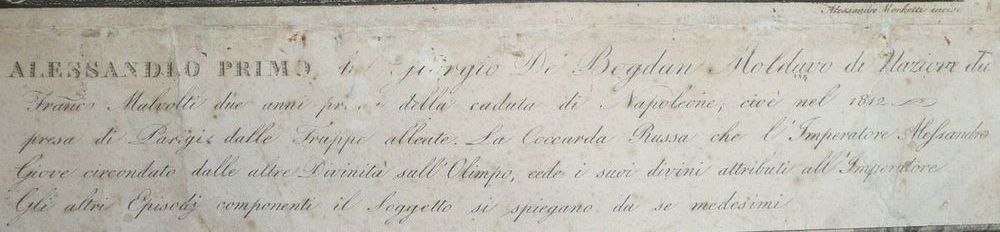 Alessandro Morhetti incise
ALESSANDRO PRIMO Giorgio De Bogdan Moldavo di Nazione da
Franco Malvolti due anni della caduta di Napoleone; cioè nel 1812
presa di Parigi dalle Truppe alleate. La Coccarda Russa che l'Imperatore Alessandro
Giove circondato dalle altre Divinità sull'Olimpo, cede i suoi divini attributi all'Imperatore
Gli altri Episodj componenti il Soggetto si spiegano da se medesimi